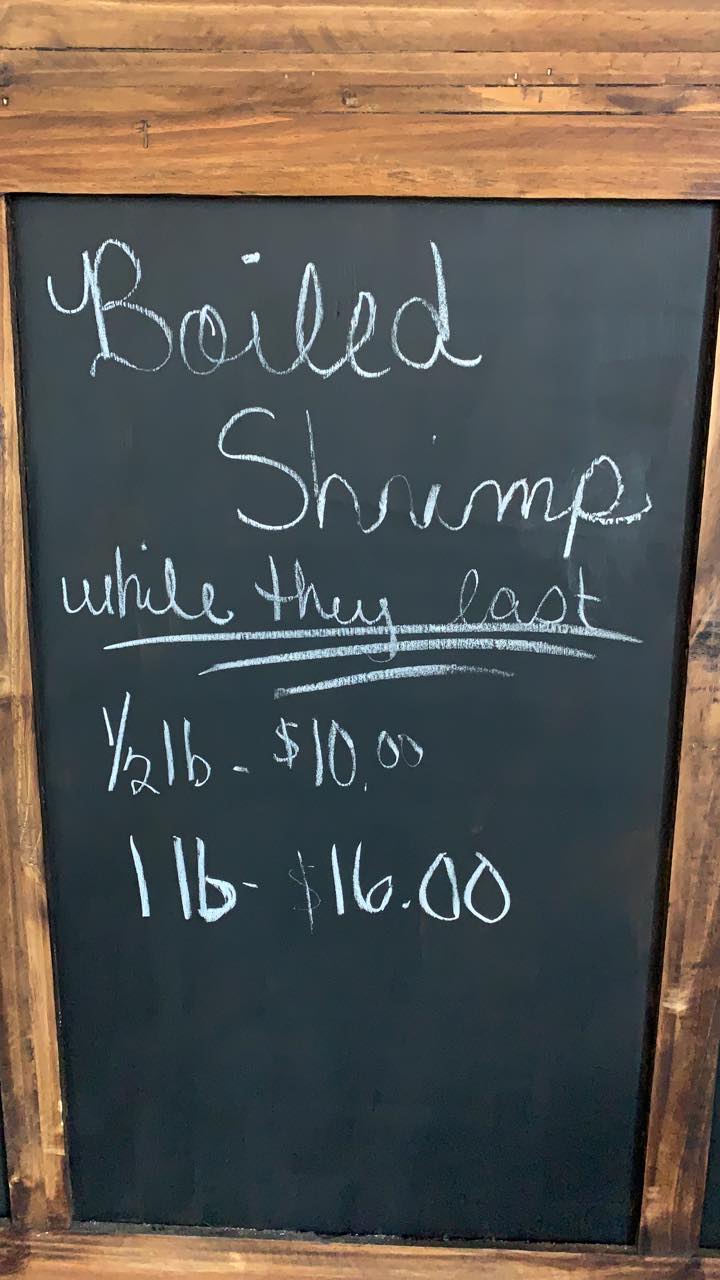 Boiled
Shrimp
while they last
1/2 lb - $10.00
1 lb - $16.00